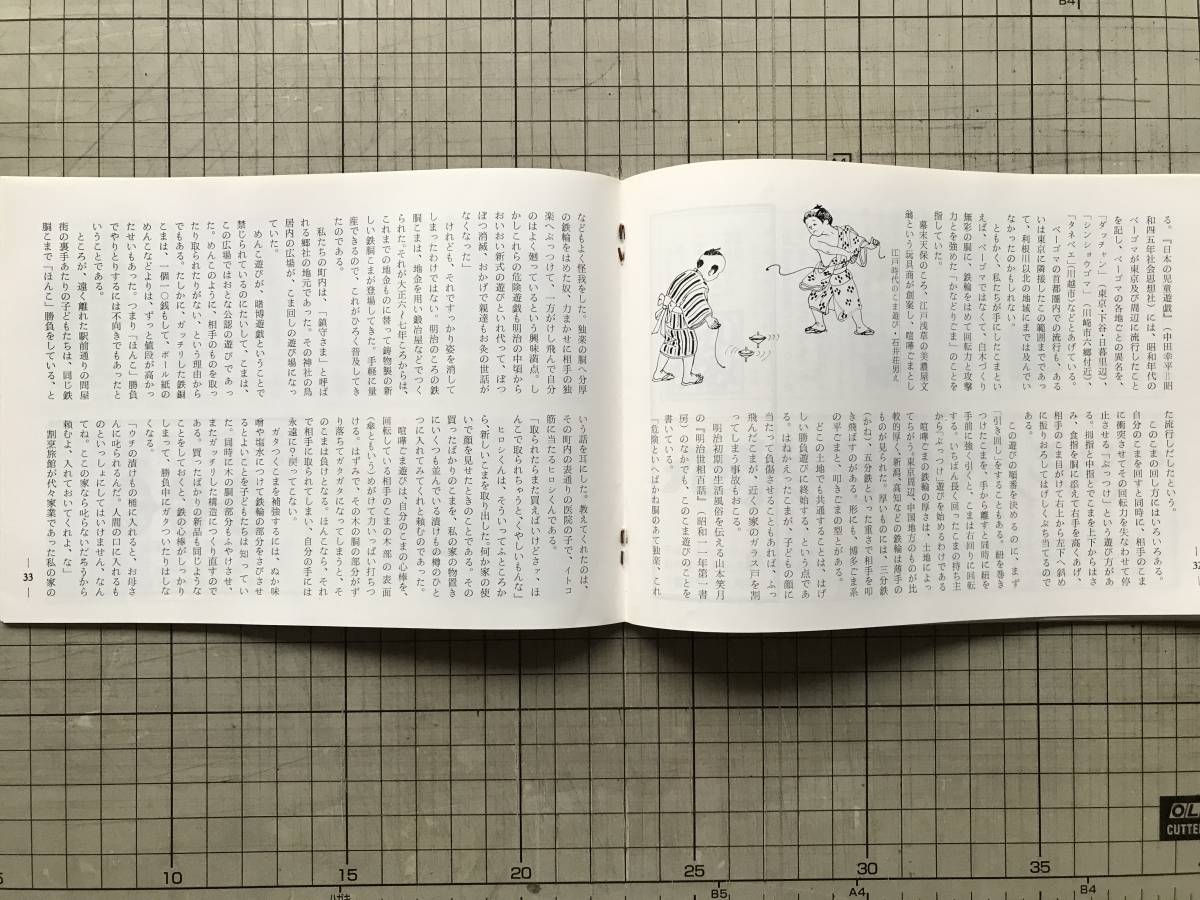 る。『日本の児童遊戯』（中田幸平＝昭
和四五年社会思想社）には、昭和年代の
ベーゴマが東京及び周辺に流行したこと
を記し、ベーゴマの各地ごとの異名を、
「ダッチャン」（東京・下谷・日暮里辺）、
「シンショウゴマ」（川崎市六郷付近）、
「タネベエ」（川越市）などとあげている。
ベーゴマの首都圏内での流行も、ある
いは東京に隣接したこの範囲までであっ
て、利根川以北の地域にまでは及んでい
なかったのかもしれない。
ともかく、私たちが手にしたこまとい
えば、ベーゴマではなくて、白木づくり
無彩の胴に、鉄輪をはめて回転力と攻撃
力とを強めた「かなどりごま」のことを
指していた。
幕末天保のころ、江戸浅草の美濃屋文
翁という玩具商が創案し、喧嘩ごまとし
江戸時代のこま遊び・石井荘男え
た流行しだしたという。
このこまの回し方にはいろいろある。
自分のこまを回すと同時に、相手のこま
に衝突させてその回転力を失なわせて停
止させる「ぶっつけ」という遊び方があ
る。拇指と中指とでこまを上下からはさ
み、食指を胴に添えて右手を高くあげ、
相手のこま目がけて右上から左下へ斜め
に振りおろしてはげしくぶち当てるので
ある。
この遊びの順番を決めるのに、まず
「引き回し」をすることもある。紐を巻き
つけたこまを、手から離すと同時に紐を
手前に強く引くと、こまは右回りに回転
する。いちばん長く回ったこまの持ち主
から「ぶっつけ」遊びを始めるわけである。
喧嘩ごまの鉄輪の厚さは、土地によっ
てちがう。東京周辺、中国地方のものが比
較的厚く、新潟、高知などの鉄輪は薄手の
ものが見られた。厚いものには、三分鉄
（かね）、五分鉄といった重さで相手を叩
き飛ばすのがある。形にも、博多ごま系
の平ごまと、叩きごまの型とがある。
どこの土地でも共通することは、はげ
しい勝負遊びに終始する、という点であ
る。はねかえったこまが、子どもの顔に
当たって負傷させることもあれば、ふっ
飛んだこまが、近くの家のガラス戸を割
ってしまう事故もおこる。
明治初期の生活風俗を伝える山本笑月
の『明治世相百話』（昭和一一年第一書
房）のなかでも、このこま遊びのことを
書いている。
「危険といへばかね胴のあて独楽、これ
32
などもよく怪我をした。独楽の胴へ分厚
の鉄輪をはめた奴、力まかせに相手の独
楽へぶっつけて、一方がけし飛んで自分
のはよく廻っているという興味満点。し
かしこれらの危険遊戯も明治の中頃から
おいおい新式の遊びといれ代って、ぼつ
ぼつ消滅、おかげで親達もお灸の世話が
なくなった」
けれども、それですっかり姿を消して
しまったわけではない。明治のころの鉄
胴こまは、地金を用い鍛治屋などでつく
られた。それが大正六〜七年ころからは、
これまでの地金ものに替って鋳物製の新
しい鉄胴こまが登場してきた。手軽に量
産できるので、これがひろく普及してき
たのである。
私たちの町内は、「鎮守さま」と呼ば
れる郷社の地元であった。その神社の鳥
居内の広場が、こま回しの遊び場になっ
ていた。
めんこ遊びが、賭博遊戯ということで
禁じられているのにたいして、こまは、
この広場ではおとな公認の遊びであっ
た。めんこのように、相手のものを取っ
たり取られたりがない、という理由から
でもある。たしかに、ガッチリした鉄銅
こまは、一個一〇銭もして、ボール紙の
めんこなどよりは、ずっと値段が高かっ
たせいもあった。つまり「ほんこ」勝負
でやりとりするには不向きでもあったと
いうことである。
ところが、遠く離れた駅前通りの問屋
街の裏手あたりの子どもたちは、同じ鉄
胴こまで「ほんこ」勝負をしている、と
いう話を耳にした。教えてくれたのは、
その町内の表通りの医院の子で、イトコ
筋に当たるヒロシくんである。
「取られたらまた買えばいけどさァ、ほ
んこで取られちゃうと、くやしいもんな」
ヒロシくんは、そういってふところか
ら、新しいこまを取り出した。何か家の使
いで顔を見せたときのことである。その
買ったばかりのこまを、私の家の物置き
にいくつも並んでいる漬けもの樽のひと
つに入れてみてくれと頼むのであった。
喧嘩ごま遊びは、自分のこまの心棒を、
回転している相手のこまの木部の表面
（傘ともいう）めがけて力いっぱい打ちつ
ける。はずみで、その木の胴の部分がす
り落ちてガタガタになってしまうと、そ
のこまは負けとなる。ほんこなら、それ
で相手に取られてしまい、自分の手には
永遠に？戻ってこない。
ガタつくこまを補強するには、ぬか味
噌や塩水につけて鉄輪の部分をさびさせ
るとよいことを子どもたちは知ってい
た。同時に木の胴の部分もふやけさせ、
またガッチリした構造につくり直すので
ある。買ったばかりの新品も同じような
ことをしておくと、鉄の心棒がしっかり
しまって、勝負中にガタついたりはしな
くなる。
「ウチの漬けもの桶に入れると、お母さ
んに叱られるんだ。人間の口に入れるも
のといっしょにしてはいけません、なん
てね。ここの家なら叱らないだろうから
頼むよ、入れておいてくれよ、な」
割烹旅館が代々家業であった私の家の
33
B4
OL
CUTTE
10
15
20
25
30
35
ハガキ
B5
A4
B4